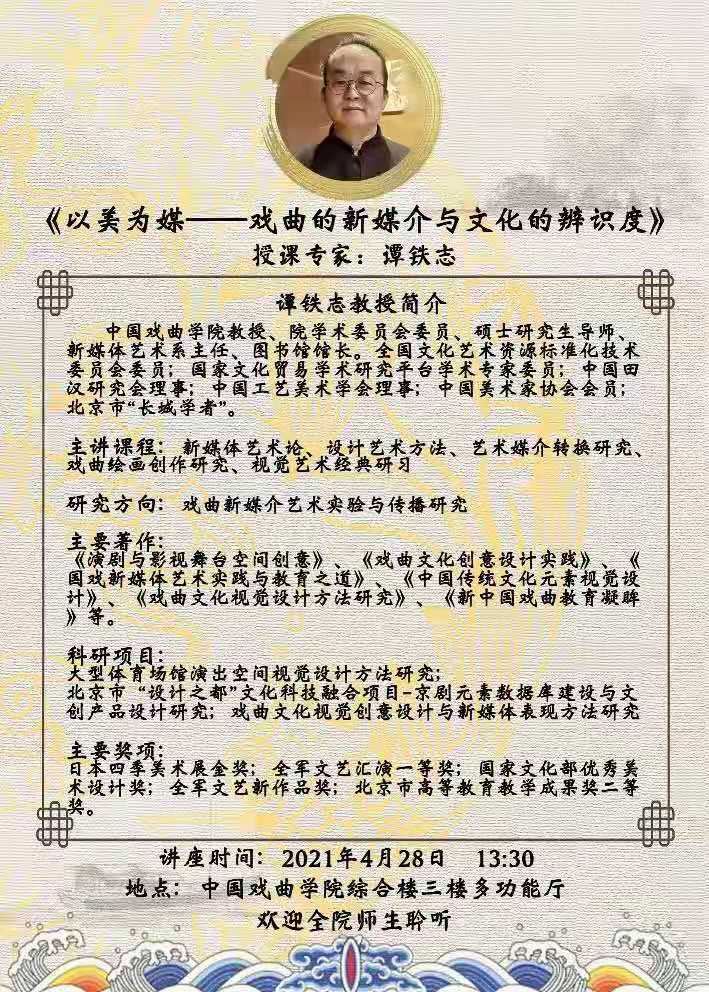 《以美为媒——戏曲的新媒介与文化的辨识度》
授课专家：谭铁志
谭铁志教授简介
中国戏曲学院教授、院学术委员会委员、硕士研究生导师、
新媒体艺术系主任、图书馆馆长。全国文化艺术资源标准化技术
委员会委员；国家文化贸易学术研究平台学术专家委员；中国田
汉研究会理事；中国工艺美术学会理事；中国美术家协会会员；
北京市“长城学者”。
主讲课程：新媒体艺术论、设计艺术方法、艺术媒介转换研究、
戏曲绘画创作研究、视觉艺术经典研习
研究方向：戏曲新媒介艺术实验与传播研究
主要著作：
《演剧与影视舞台空间创意》、《戏曲文化创意设计实践》、《
国戏新媒体艺术实践与教育之道》、《中国传统文化元素视觉设
计》、《戏曲文化视觉设计方法研究》、《新中国戏曲教育凝眸
》等。
科研项目：
大型体育场馆演出空间视觉设计方法研究；
北京市“设计之都”文化科技融合项目-京剧元素数据库建设与文
创产品设计研究；戏曲文化视觉创意设计与新媒体表现方法研究
主要奖项：
日本四季美术展金奖；全军文艺汇演一等奖；国家文化部优秀美
术设计奖；全军文艺新作品奖；北京市高等教育教学成果奖二等
奖。
讲座时间：2021年4月28日 13:30
地点：中国戏曲学院综合楼三楼多功能厅
欢迎全院师生聆听